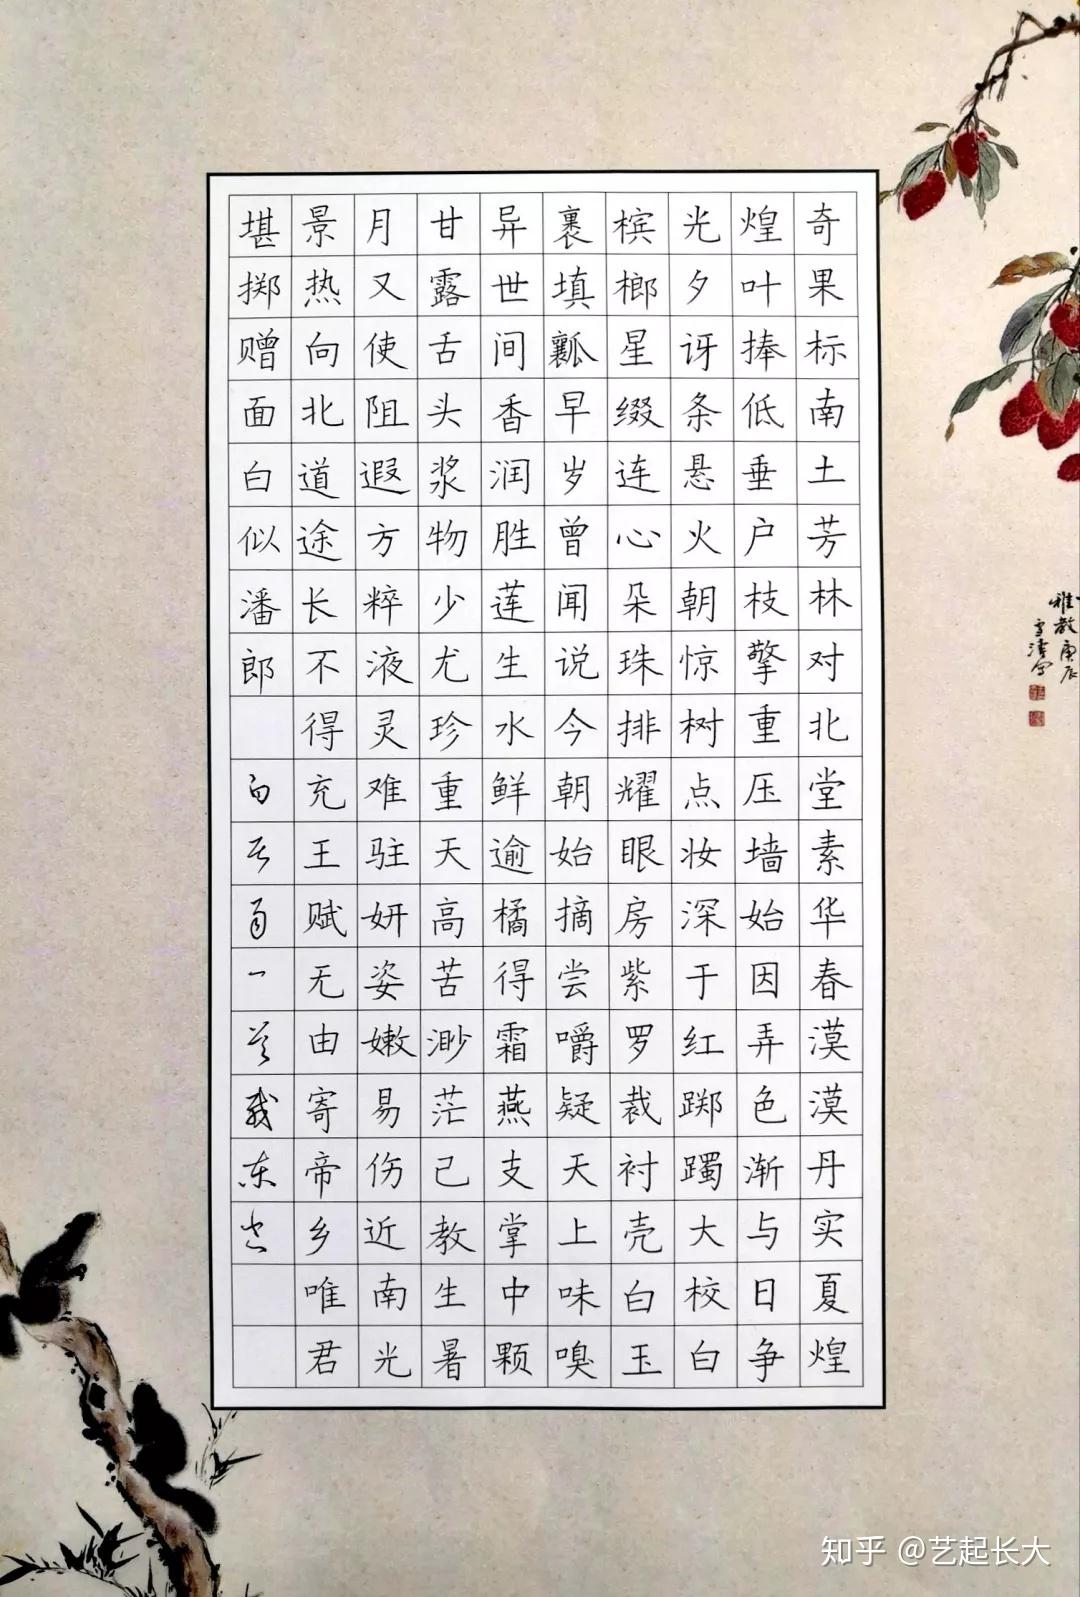 奇果标南土芳林对北堂素华春漠漠丹实夏煌
煌叶捧低垂户枝擎重压墙始因弄色渐与日争
光夕讶条悬火朝惊树点妆深于红踯躅大校白
槟榔星缀连心朵珠排耀眼房紫罗裁衬壳白玉
裹填瓤早岁曾闻说今朝始摘尝嚼疑天上味嗅
异世间香润胜莲生水鲜逾橘得霜燕支掌中颗
甘露舌头浆物少尤珍重天高苦渺茫己教生暑
月又使阻遐方粹液灵难驻妍姿嫩易伤近南光
景热向北道途长不得充王赋无由寄帝乡唯君
堪掷赠面白似潘郎
雅教庚辰
雪涛写
知乎 @艺起长大